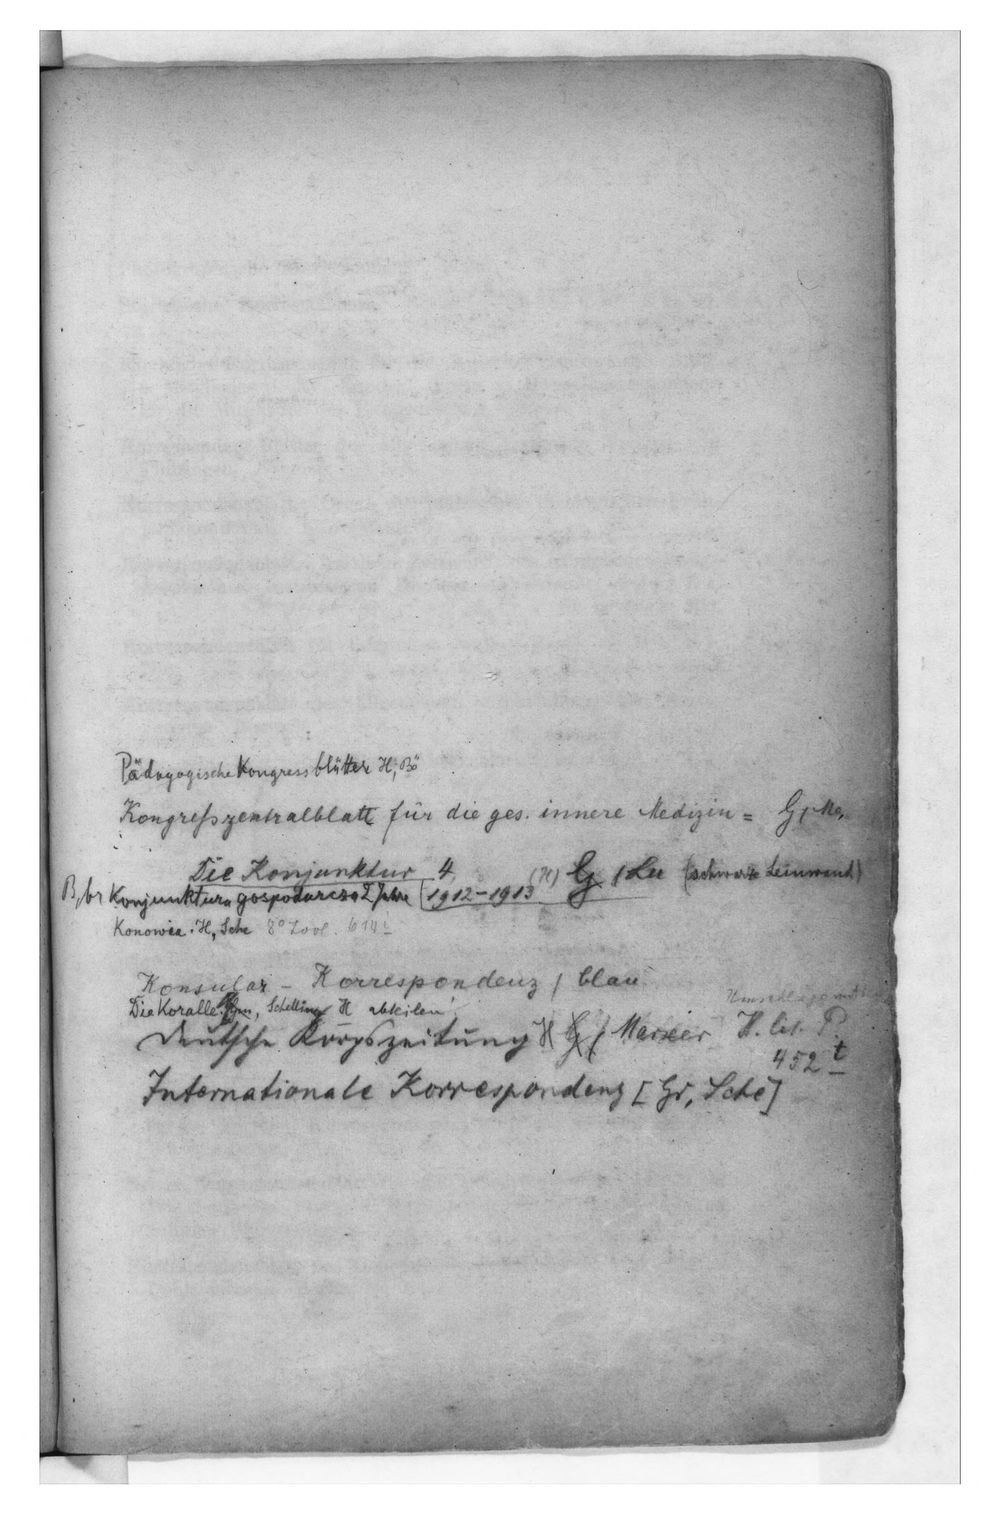 Pädagogische Kongressblätter H, Bö
Kongreßzentralblatt für die ges. innere Medizin = G, Me,
Die Konjunktur 4. (H) G / Lu (schwarze Leinwand)
B, br Konjunktura gospodarcza 2 Jahre [1912-1913
Konowia. H, Sche 8° Zool. 614 i
Konsular - Korrespondenz / blau
Die Koralle. Schelling H abteilen!
Deutsche Korpszeitung H G / H. lit. P.
452 t
Internationale Korrespondenz [Gr, Sche]